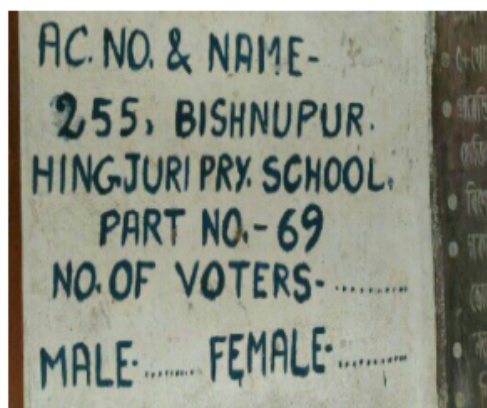 AC. NO. & NAME-
255, BISHNUPUR.
HINGJURI PRY. SCHOOL.
PART NO.- 69
NO. OF VOTERS- .........
MALE- ...... FEMALE- .........